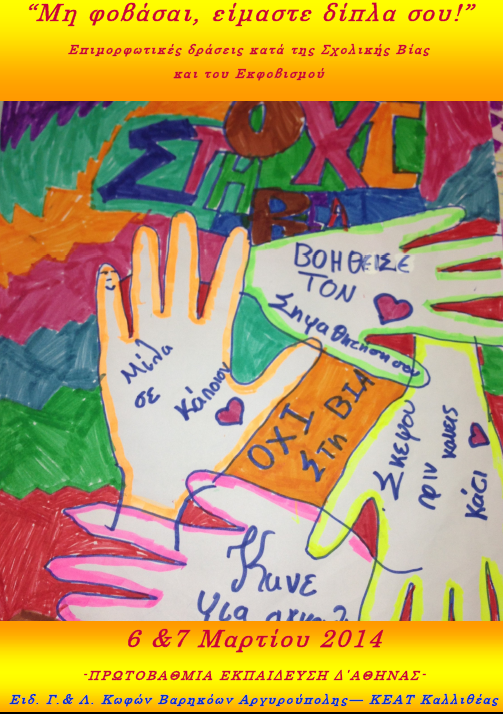 “Μη φοβάσαι, είμαστε δίπλα σου!”
Επιμορφωτικές δράσεις κατά της Σχολικής Βίας
και του Εκφοβισμού
ΟΧΙ
ΣΤΗ
ΒΙΑ
ΒΟΗΘΕΙΣΕ
ΤΟΝ
Μίλα
σε
Κάποιον
ΟΧΙ
ΣΤη ΒΙΑ
Σκεψου
πριν κανεις
κάτι
Κανε
μια
6 &7 Μαρτίου 2014
-ΠΡΩΤΟΒΑΘΜΙΑ ΕΚΠΑΙΔΕΥΣΗ Δ'ΑΘΗΝΑΣ-
Ειδ. Γ.& Λ. Κωφών Βαρηκόων Αργυρούπολης— ΚΕΑΤ Καλλιθέας